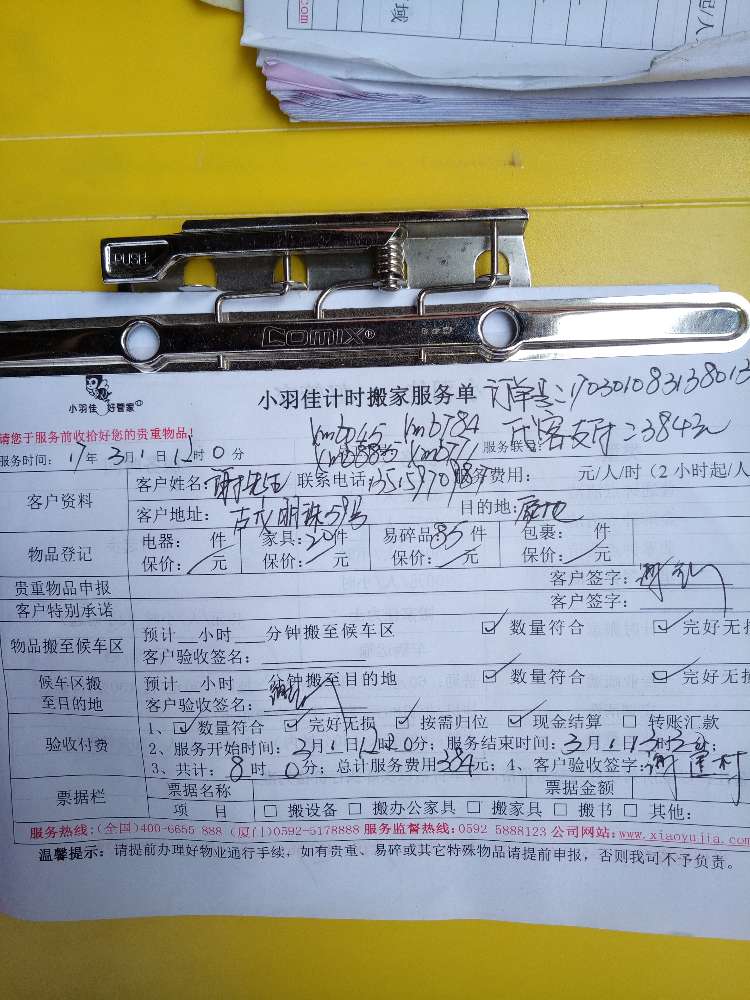 记/人
域
com
PUSH
COMIX®
小羽佳 好管家
小羽佳计时搬家服务单 订单号:170301083138013
请您于服务前收拾好您的贵重物品!
kmb015 kmb784 代客支付:384元
服务时间:17年3月1日12时0分 kmb885 kmb771 服务联
客户资料 客户姓名:谢先生 联系电话: 服务费用: 元/人/时(2小时起/人
客户地址: 明珠59号 目的地:
物品登记 电器: 件 家具:20件 易碎品:35件 包裹: 件
保价: 元 保价: 元 保价: 元 保价: 元
贵重物品申报 客户签字:谢
客户特别承诺 客户签字:
物品搬至候车区 预计__小时__分钟搬至候车区 ☑ 数量符合 ☑ 完好无损
客户验收签名:
候车区搬至目的地 预计__小时__分钟搬至目的地 ☑ 数量符合 ☑ 完好无损
客户验收签名:
验收付费 1、☑ 数量符合 ☑ 完好无损 ☑ 按需归位 ☑ 现金结算 □ 转账汇款
2、服务开始时间:3月1日12时20分;服务结束时间:3月1日13时
3、共计:8时0分;总计服务费用384元;4、客户验收签字:谢建村
票据栏 票据名称 票据金额
项 目 □ 搬设备 □ 搬办公家具 □ 搬家具 □ 搬书 □ 其他:
服务热线:(全国)400-6655 888 (厦门)0592-5178888 服务监督热线:0592 5888123 公司网站:www.xiaoyujia.com
温馨提示:请提前办理好物业通行手续,如有贵重、易碎或其它特殊物品请提前申报,否则我司不予负责。